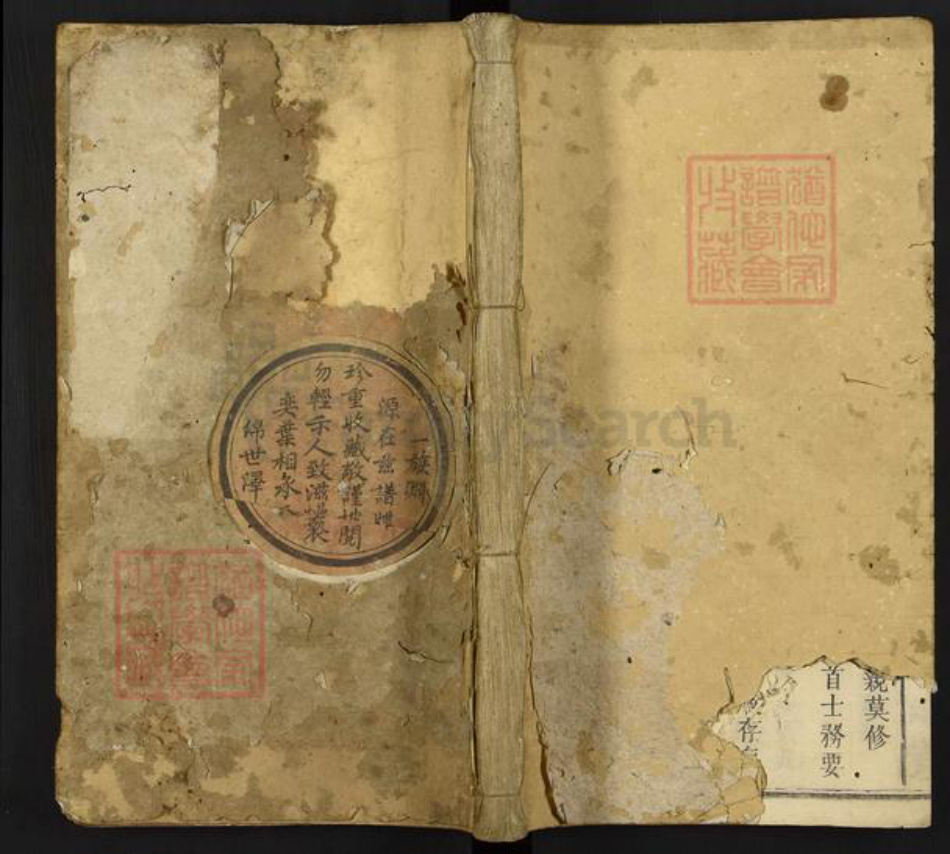 親莫修
首士務要
存
一族
源在茲譜
珍重收藏敬謹世閱
勿輕示人致滋
奕葉相承
綿世澤
猶他家
譜學會
收藏
猶他家
譜學會
收藏